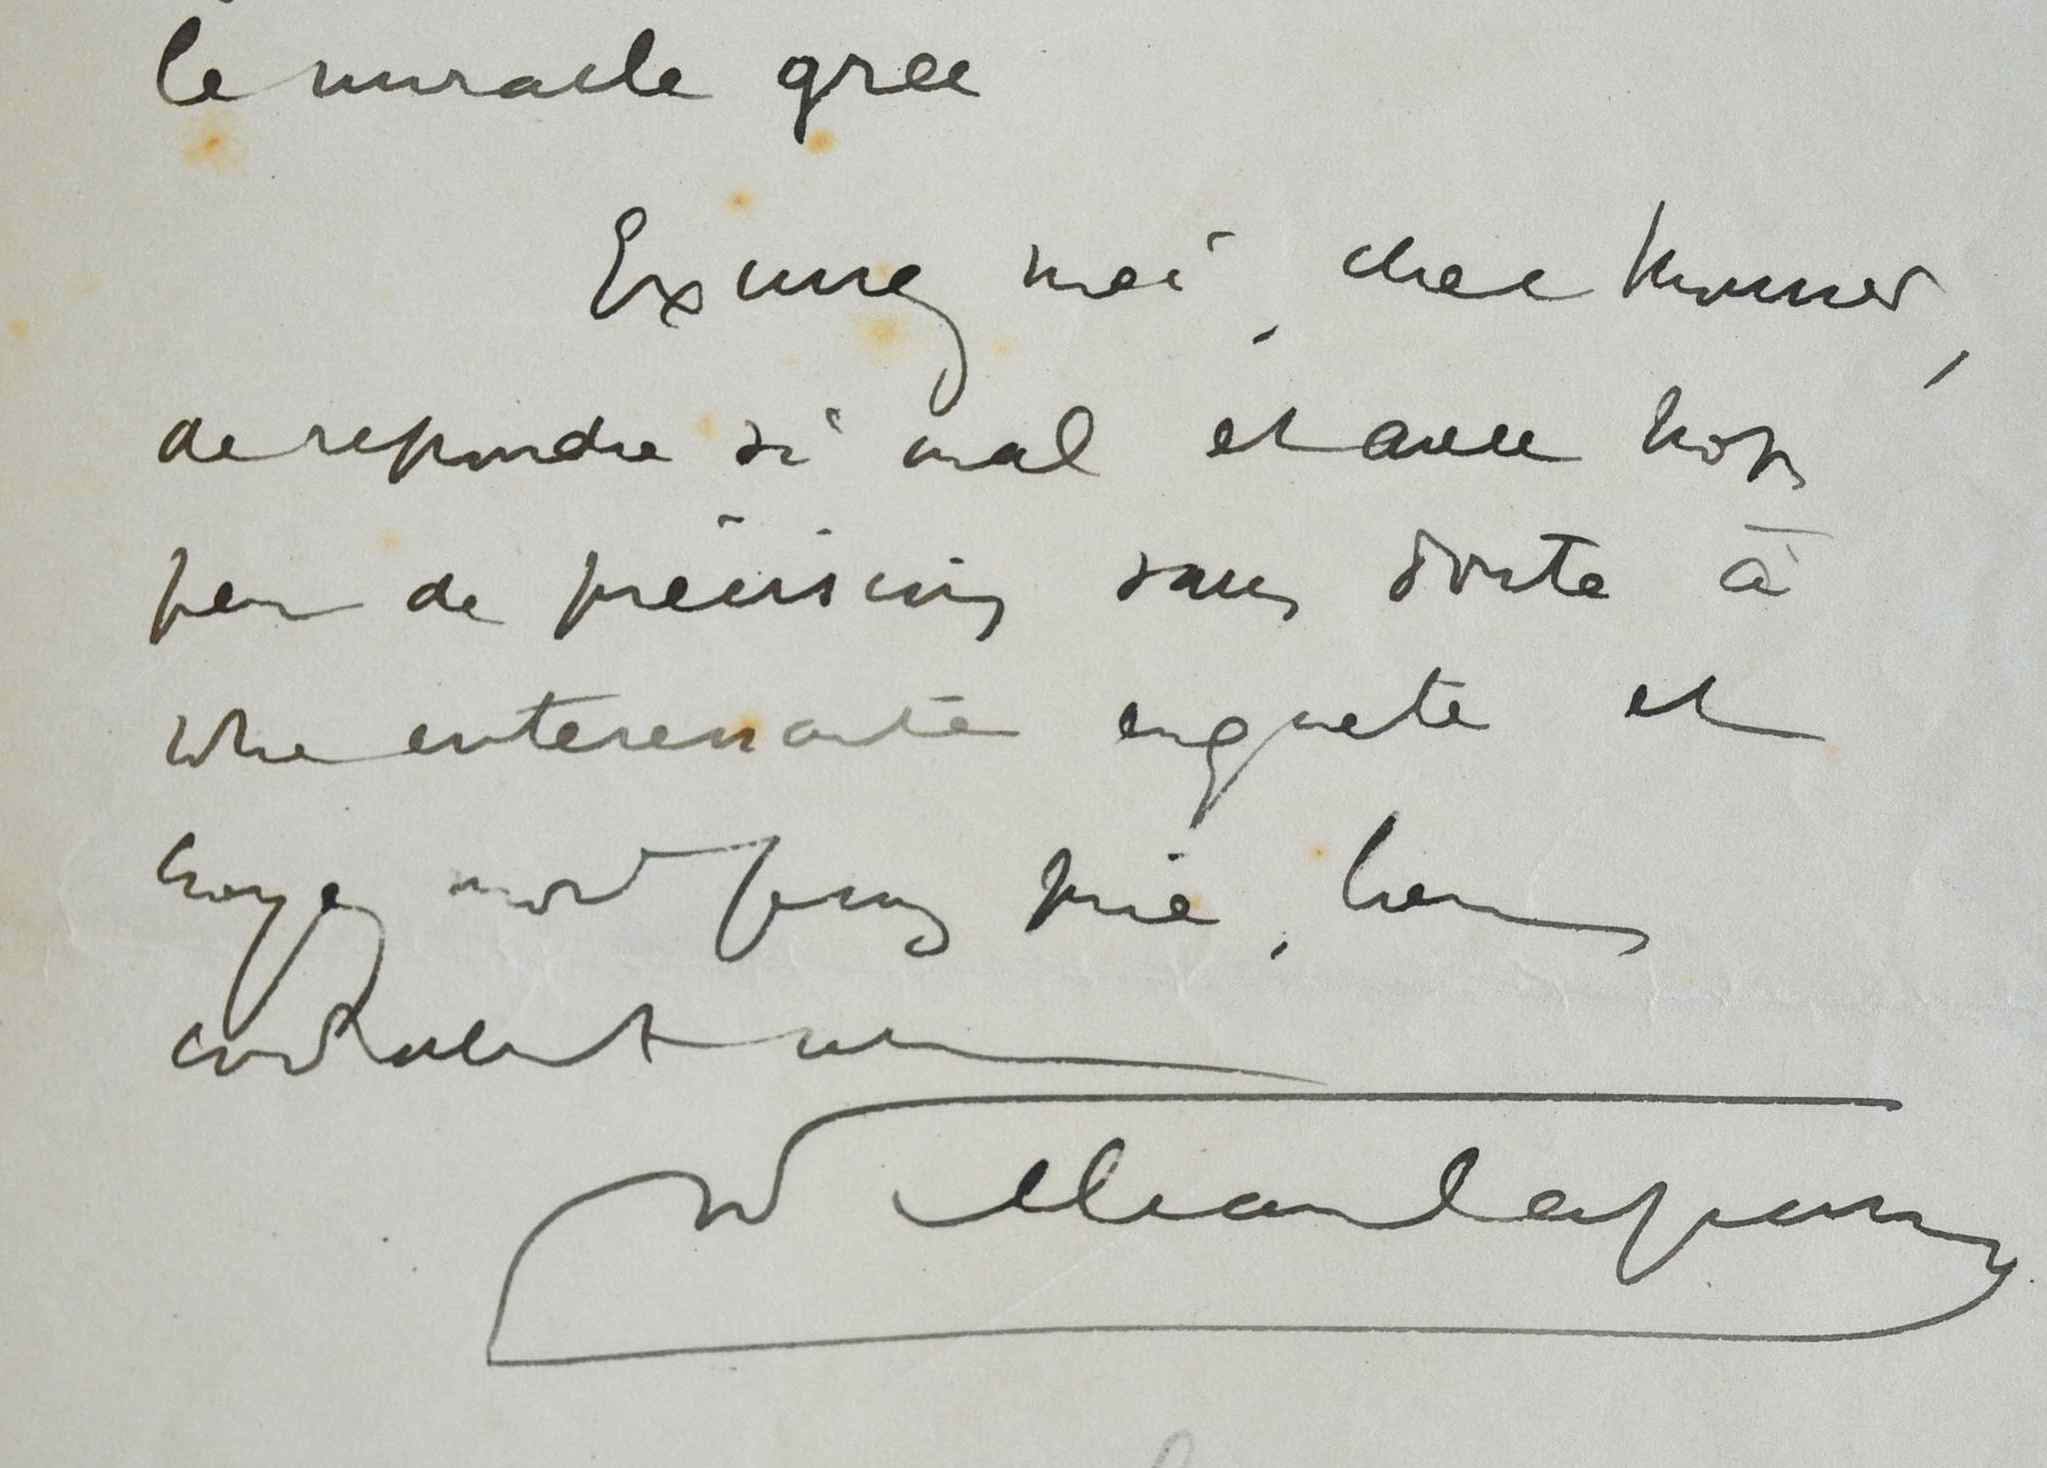 le miracle grec
Excusez moi, cher Monsieur,
de repondre si mal et avec trop
peu de précision sans doute à
votre interessante enquete et
croyez moi je vous prie, bien
cordialement